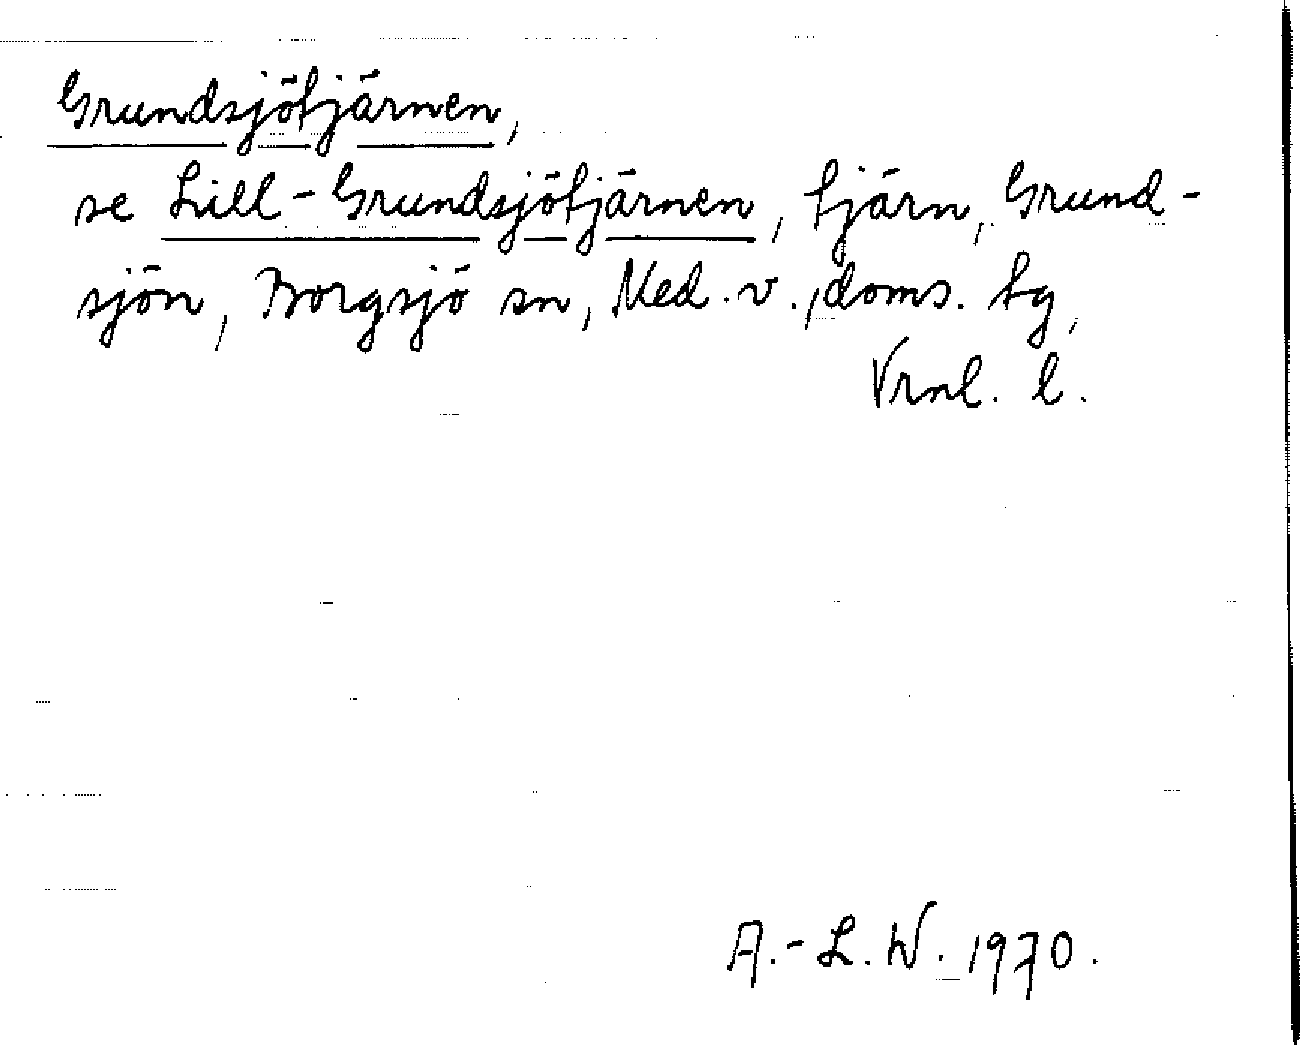 Grundsjötjärnen,
se Lill-Grundsjötjärnen, tjärn, Grund-
sjön, Borgsjö sn, Med. v., doms. tg,
Vrnl. l.
A.-L. W. 1970.